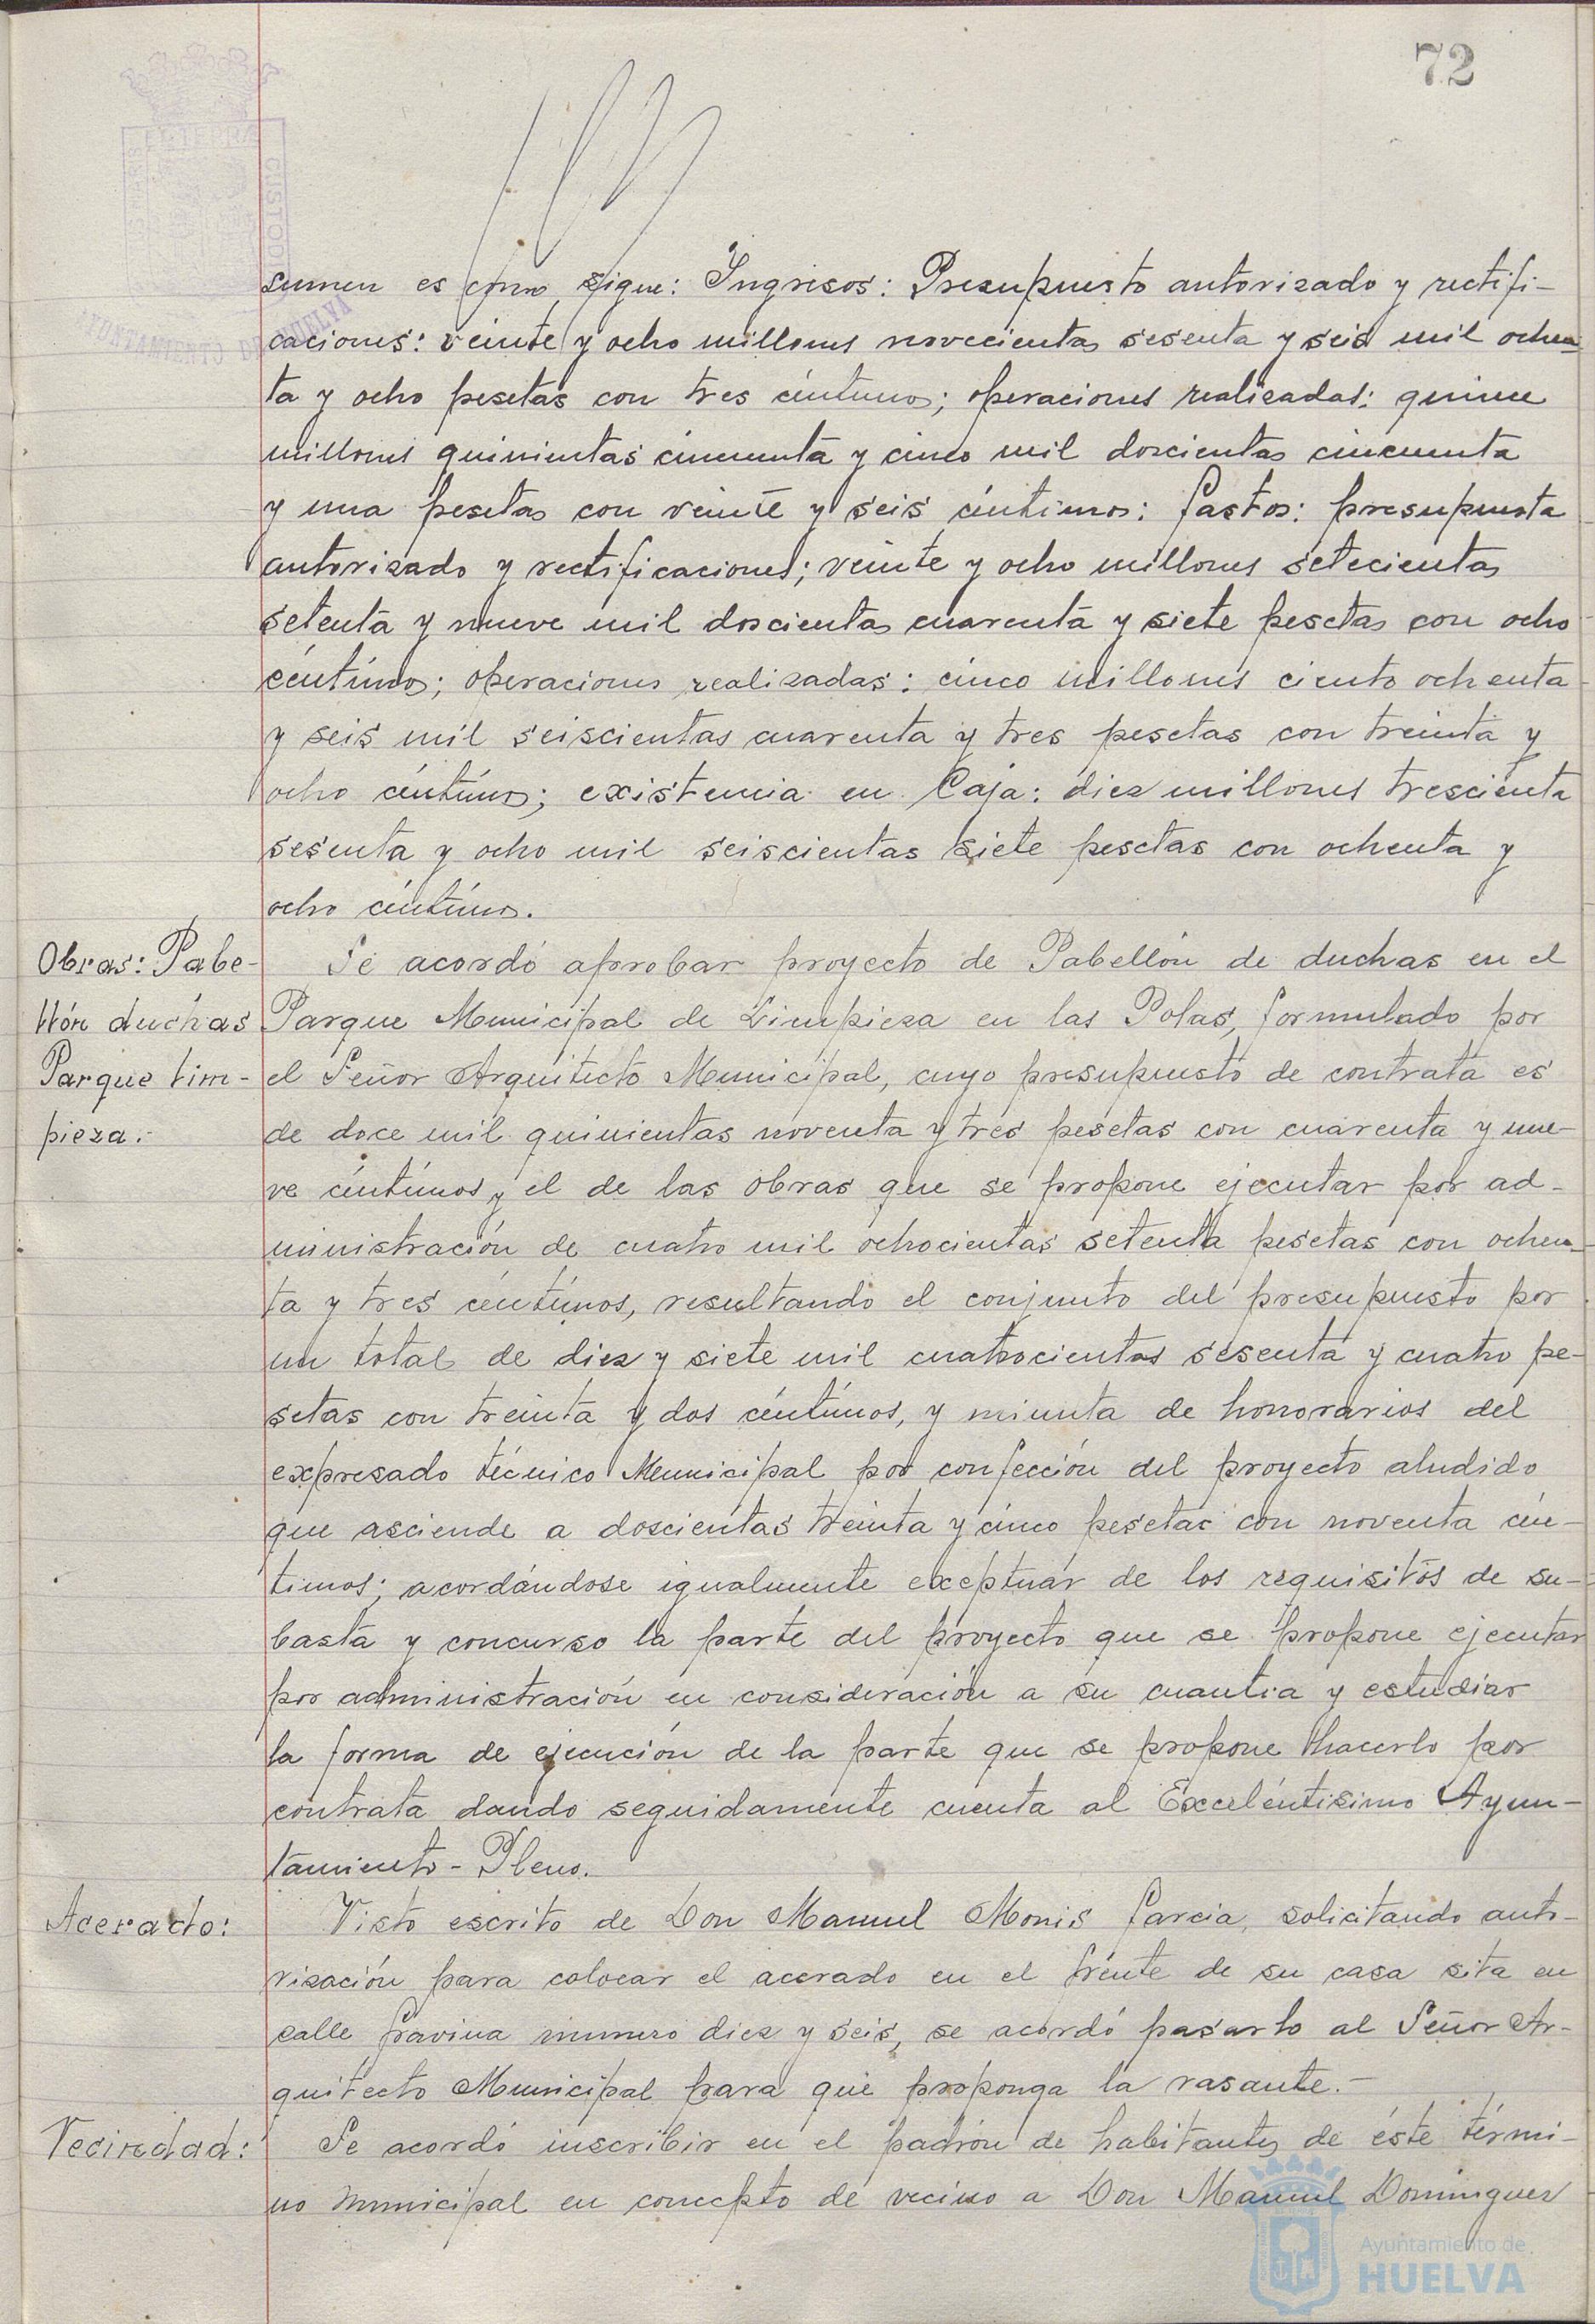 72
sumen es como sigue: Ingresos: Presupuesto autorizado y rectifi-
caciones: veinte y ocho millones novecientas sesenta y seis mil ochen-
ta y ocho pesetas con tres céntimos; operaciones realizadas: quince
millones quinientas cincuenta y cinco mil doscientas cincuenta
y una pesetas con veinte y seis céntimos: Gastos: presupuesto
autorizado y rectificaciones; veinte y ocho millones setecientas
setenta y nueve mil doscientas cuarenta y siete pesetas con ocho
céntimos; operaciones realizadas: cinco millones ciento ochenta
y seis mil seiscientas cuarenta y tres pesetas con treinta y
ocho céntimos; existencia en Caja: diez millones trescienta
sesenta y ocho mil seiscientas siete pesetas con ochenta y
ocho céntimos.
Obras: Pabe-
llón duchas
Parque lim-
pieza.-
Se acordó aprobar proyecto de Pabellón de duchas en el
Parque Municipal de Limpieza en las Polas, formulado por
el Señor Arquitecto Municipal, cuyo presupuesto de contrata es
de doce mil quinientas noventa y tres pesetas con cuarenta y nue-
ve céntimos y el de las obras que se propone ejecutar por ad-
ministración de cuatro mil ochocientas setenta pesetas con ochen-
ta y tres céntimos, resultando el conjunto del presupuesto por
un total de diez y siete mil cuatrocientas sesenta y cuatro pe-
setas con treinta y dos céntimos, y minuta de honorarios del
expresado técnico Municipal por confección del proyecto aludido
que asciende a doscientas treinta y cinco pesetas con noventa cén-
timos; acordándose igualmente exceptuar de los requisitos de su-
basta y concurso la parte del proyecto que se propone ejecutar
por administración en consideración a su cuantia y estudiar
la forma de ejecución de la parte que se propone hacerlo por
contrata dando seguidamente cuenta al Excelentisimo Ayun-
tamiento-Pleno.
Acerado:
Visto escrito de Don Manuel Monis Garcia, solicitando auto-
rización para colocar el acerado en el frente de su casa sita en
calle Gravina numero diez y seis, se acordó pasarlo al Señor Ar-
quitecto Municipal para que proponga la rasante.-
Vecindad:
Se acordó inscribir en el padrón de habitantes de éste térmi-
no municipal en concepto de vecino a Don Manuel Dominguez
Ayuntamiento de
HUELVA